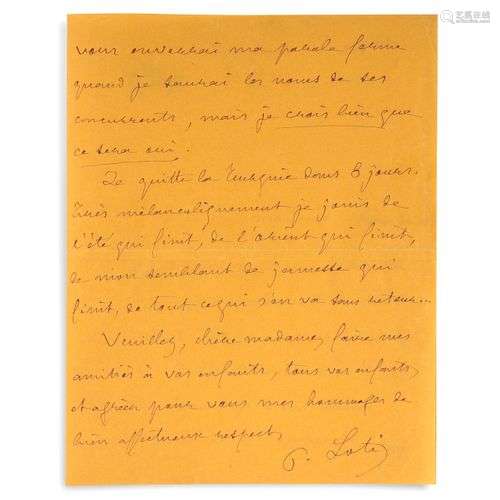 vous enverrai ma parole ferme
quand je saurai les noms de ses
concurrents, mais je crois bien que
ce sera oui.
Je quitte la Turquie dans 8 jours.
Très mélancoliquement je jouis de
l'été qui finit, de l'Orient qui finit,
de mon semblant de jeunesse qui
finit, de tout ce qui s'en va sans retour...
Veuillez, chère madame, faire mes
amitiés à vos enfants, tous vos enfants,
et agréer pour vous mes hommages de
bien affectueux respect,
P. Loti